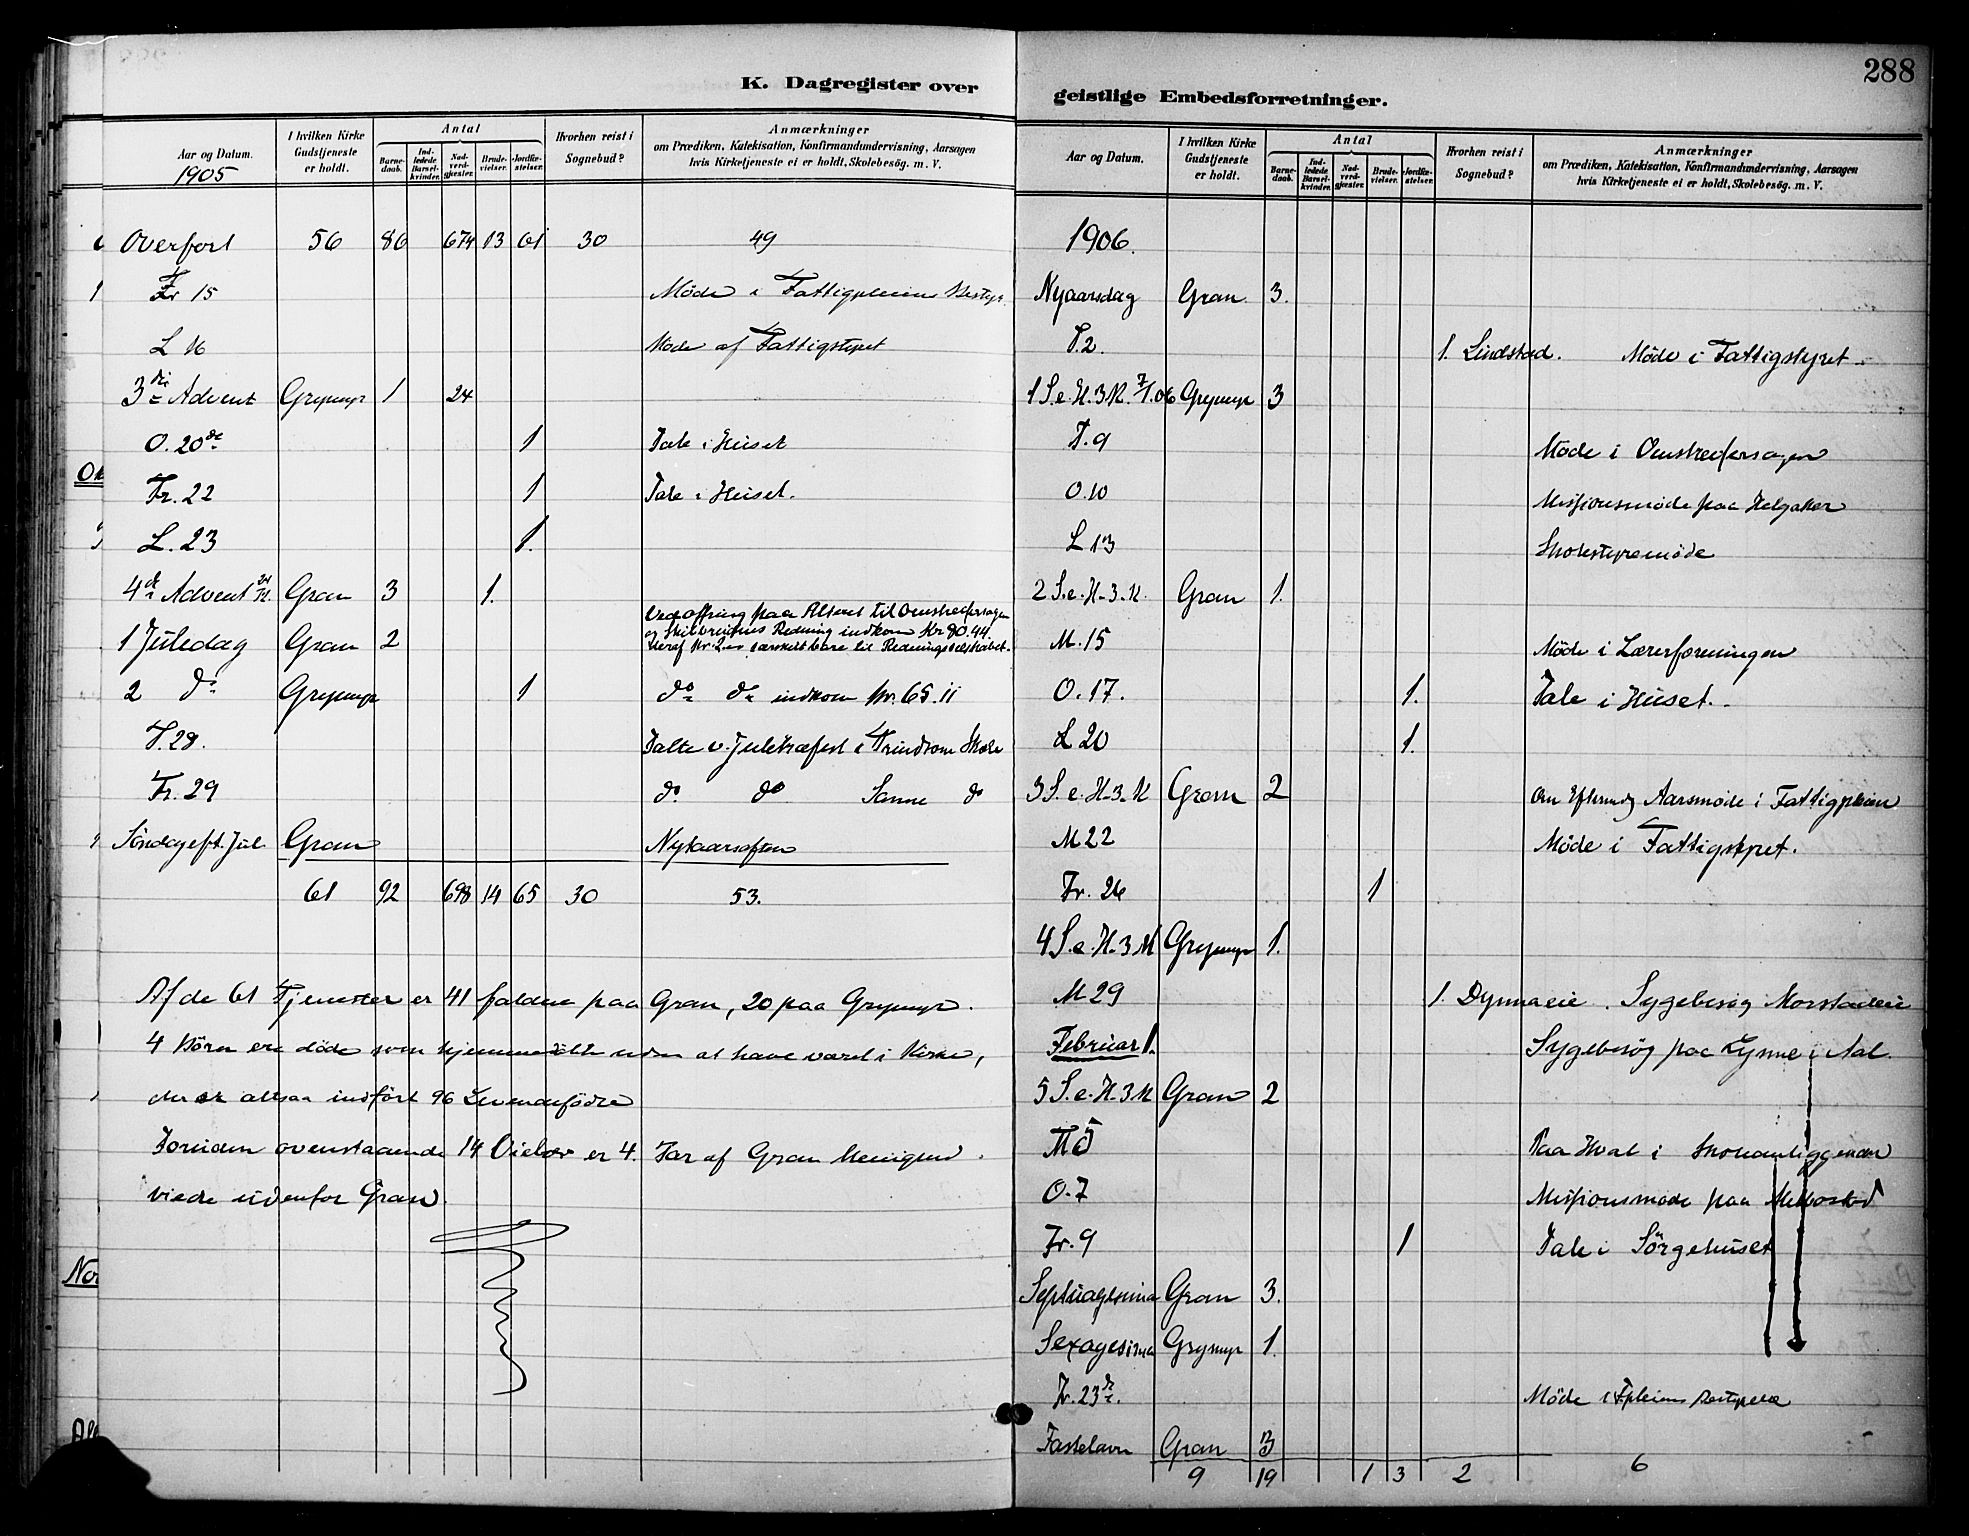 K. Dagregister over
Aar og Datum.
1905
I hvilken Kirke Gudstjeneste er holdt.
Antal
Barne-daab.
Ind-ledede Barsel-kvinder.
Nad-verd-gjester.
Brude-vielser.
Jordfæ-stelser.
Hvorhen reist i Sognebud?
Anmærkninger
om Prædiken, Katekisation, Konfirmandundervisning, Aarsagen
hvis Kirketjeneste ei er holdt, Skolebesög. m. V.
Overført 56 86 674 13 61 30 49
Fr 15 Møde i Fattigpleiens Bestyr.
L 16 Møde af Fattigstyret
3die Advent Grymyr 1 24
O. 20de 1 Tale i Huset
Fr. 22 1 Tale i Huset.
L. 23 1.
4de Advent 24/12. Gran 3 1.
Ved Offring paa Alteret til Omstreifersagen
1 Juledag Gran 2
og Skibbrudnes Redning indkom Kr 80.44
Heraf Kr. 2 særskilt bare til Redningsselskabet.
2 do Grymyr 1 do do indkom Kr. 65.11
T. 28. Talte v. Juletræfest i Trindrom Skole
Fr. 29 do do Sanne do
Søndag eft. Jul Gran Nytaarsaften
61 92 698 14 65 30 53.
Af de 61 Tjenester er 41 faldne paa Gran, 20 paa Grymyr.
4 Börn ere døde som hjemmedøbte uden at have været i Kirke,
der er altsaa indført 96 Levendefödte
Foruden ovenstaaende 14 Vielser er 4. Par af Gran Menighed
viede udenfor Gran.
288
geistlige Embedsforretninger.
Aar og Datum.
I hvilken Kirke Gudstjeneste er holdt.
Antal
Barne-daab.
Ind-ledede Barsel-kvinder.
Nad-verd-gjester.
Brude-vielser.
Jordfæ-stelser.
Hvorhen reist i Sognebud?
Anmærkninger
om Prædiken, Katekisation, Konfirmandundervisning, Aarsagen
hvis Kirketjeneste ei er holdt, Skolebesög. m. V.
1906.
Nyaarsdag Gran 3.
T. 2. 1. Lindstad. Møde i Fattigstyret.
1 S. e. H. 3 K. 7/1.06 Grymyr 3
T. 9 Møde i Omstreifersagen
O. 10 Missionsmøde paa Helgaker
L 13 Skolestyremøde
2 S. e. H. 3. K. Gran 1.
M. 15 Møde i Lærerforeningen
O. 17. 1. Tale i Huset.
L 20 1.
3 S. e. H. 3. K Gran 2 Om Efterm̅g Aarsmøde i Fattigpleien
M 22 Møde i Fattigstyret.
Fr. 26 1
4 S. e. H. 3 K Grymyr 1.
M 29 1. Dynnaeie. Sygebesög Morstadeie
Februar 1. Sygebesög paa Lynne i Aal.
5 S. e. H. 3 K Gran 2
M 5 Paa Hval i Skoleanliggender
O. 7 Missionsmøde paa Melbostad
Fr. 9 1 Tale i Sørgehuset
Septuagesima Gran 3.
Sexagesima Grymyr 1.
Fr. 23de. Møde i Fpleiens Bestyrelse
Fastelavn Gran 3
9 19 1 3 2 6